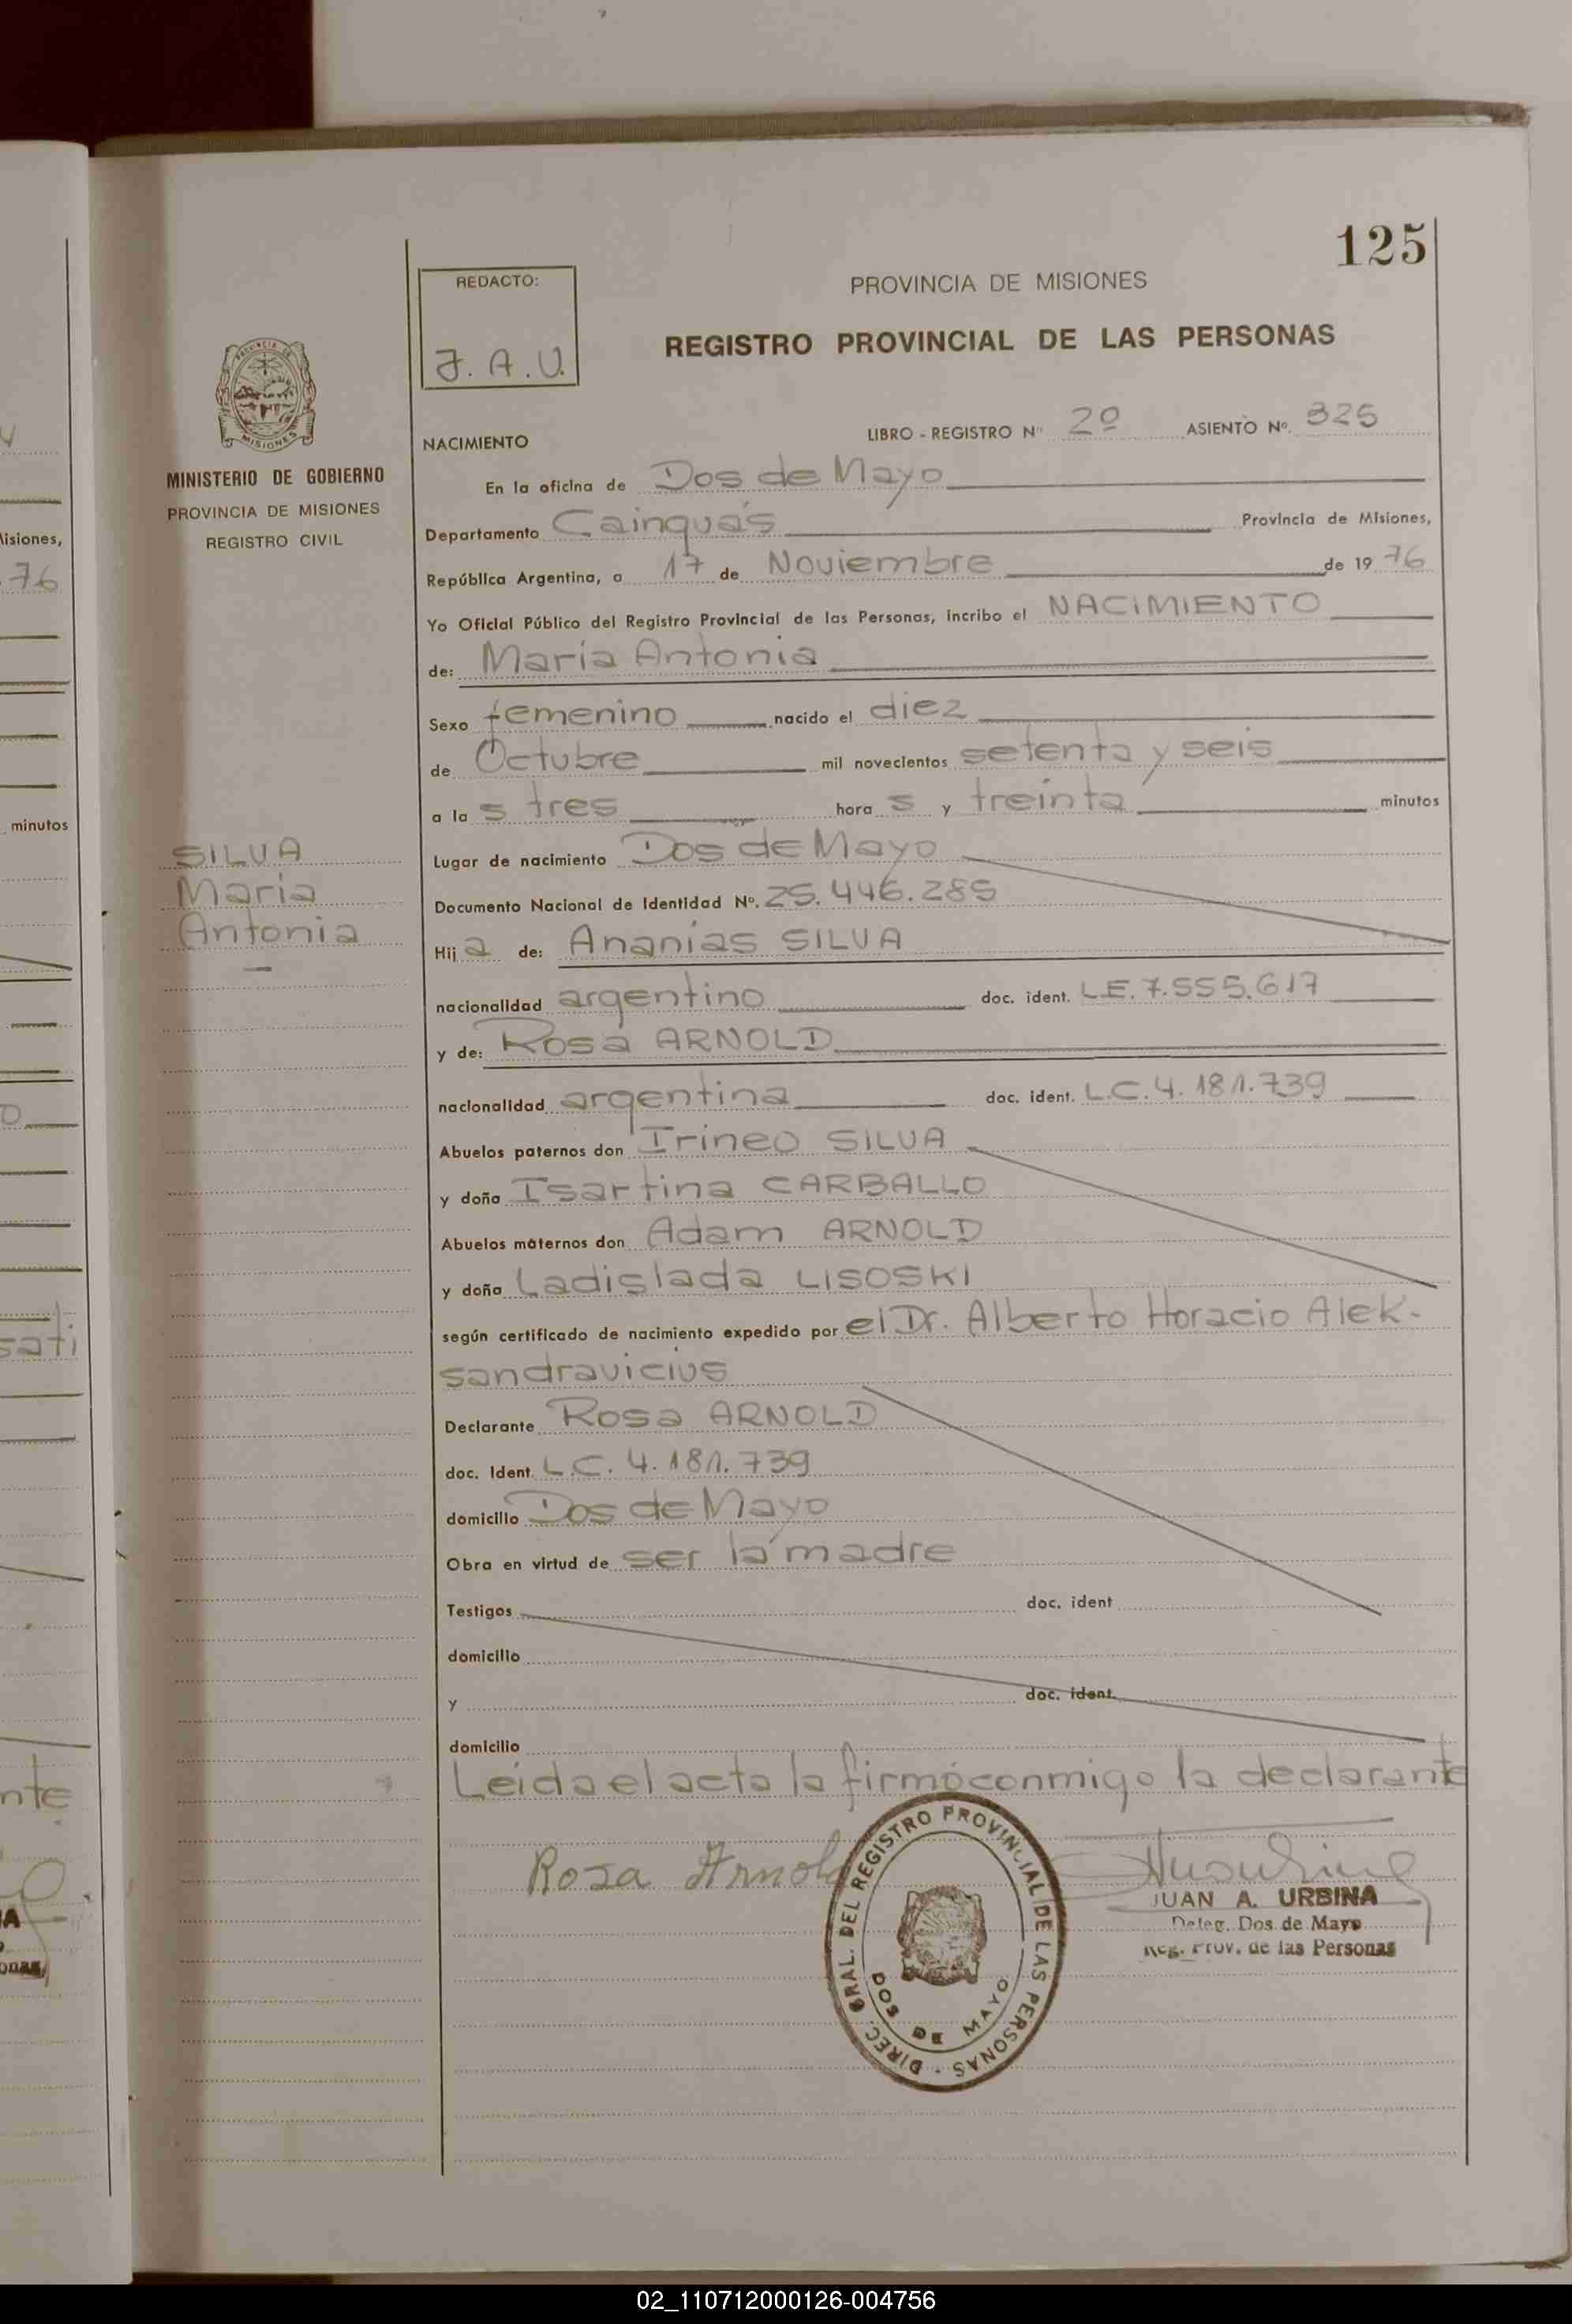 125
REDACTO:
J. A. U.
PROVINCIA DE MISIONES
REGISTRO PROVINCIAL DE LAS PERSONAS
NACIMIENTO
LIBRO - REGISTRO Nº 2º ASIENTO Nº. 325
MINISTERIO DE GOBIERNO
PROVINCIA DE MISIONES
REGISTRO CIVIL
En la oficina de Dos de Mayo
Departamento Cainguás Provincia de Misiones,
República Argentina, a 17 de Noviembre de 19 76
Yo Oficial Público del Registro Provincial de las Personas, incribo el NACIMIENTO
de: María Antonia
Sexo femenino nacido el diez
de Octubre mil novecientos setenta y seis
a la s tres hora s y treinta minutos
SILVA
María
Antonia
Lugar de nacimiento Dos de Mayo
Documento Nacional de Identidad Nº. 25.446.285
Hij a de: Ananías SILVA
nacionalidad argentino doc. ident. L.E. 7.555.617
y de: Rosa ARNOLD
nacionalidad argentina doc. ident. L.C. 4.181.739
Abuelos paternos don Irineo SILVA
y doña Isartina CARBALLO
Abuelos maternos don Adam ARNOLD
y doña Ladislada LISOSKI
según certificado de nacimiento expedido por el Dr. Alberto Horacio Alek-
sandravicius
Declarante Rosa ARNOLD
doc. Ident. L.C. 4.181.739
domicilio Dos de Mayo
Obra en virtud de ser la madre
Testigos doc. ident
domicilio
y doc. ident.
domicilio
Leída el acta la firmó conmigo la declarante
Rosa Arnold
JUAN A. URBINA
Deleg. Dos de Mayo
Reg. Prov. de las Personas
DIREC. GRAL. DEL REGISTRO PROVINCIAL DE LAS PERSONAS -
DOS DE MAYO
02_110712000126-004756